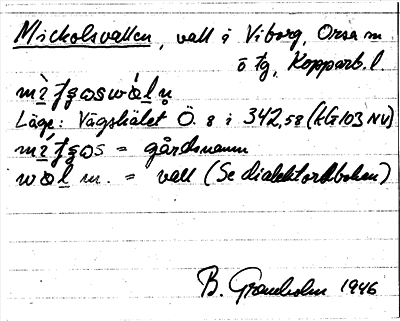 Mickolsvallen, vall i Viborg, Orsa sn.
ö tg, Kopparb. l.
Läge: Vägskälet Ö. 8 i 342,58 (kG103 NV)
= gårdsnamn
m. = vall (Se dialektordboken)
B. Granholm 1946